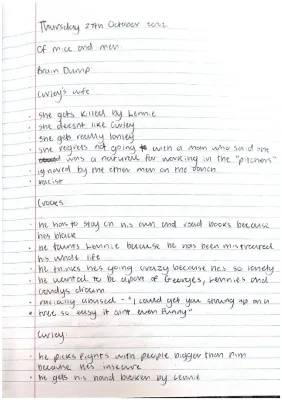 Thursday 27th October 2022
Of mice and men
Brain Dump
Curley's wife
• She gets killed by Lennie
• she doesnt like Curley
• she gets really lonley
• she regrets not going with a man who said she
was a natural for working in the "pitchers"
• ignored by the other men on the ranch
• racist
Crooks
• he has to stay on his own and read books because
hes black
• he taunts Lennie because he has been mistreated
his whole life
• he thinks hes going crazy because hes so lonely
• he wanted to be apart of Georges, Lennies and
candys dream
• racially abused - "I could get you strung up on a
• tree so easy it aint even funny"
Curley
• he picks fights with people bigger than him
because hes insecure
• he gets his hand broken by Lennie